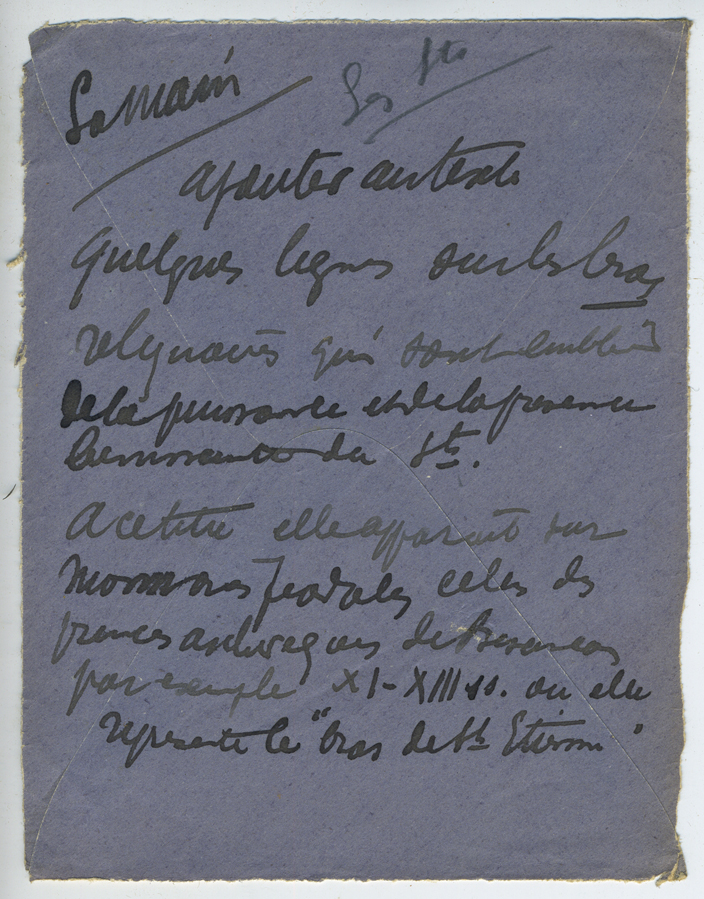 La Main Les Sts
ajouter au texte
quelques lignes sur les bras
reliquaires qui sont emblème
de la puissance et de la presence
du Sts.
A ce titre elle apparait sur
monnaies féodales celles des
princes archeveques de Besancon
par exemple XI-XIII ss. ou elle
represente le "bras de St Etienne"